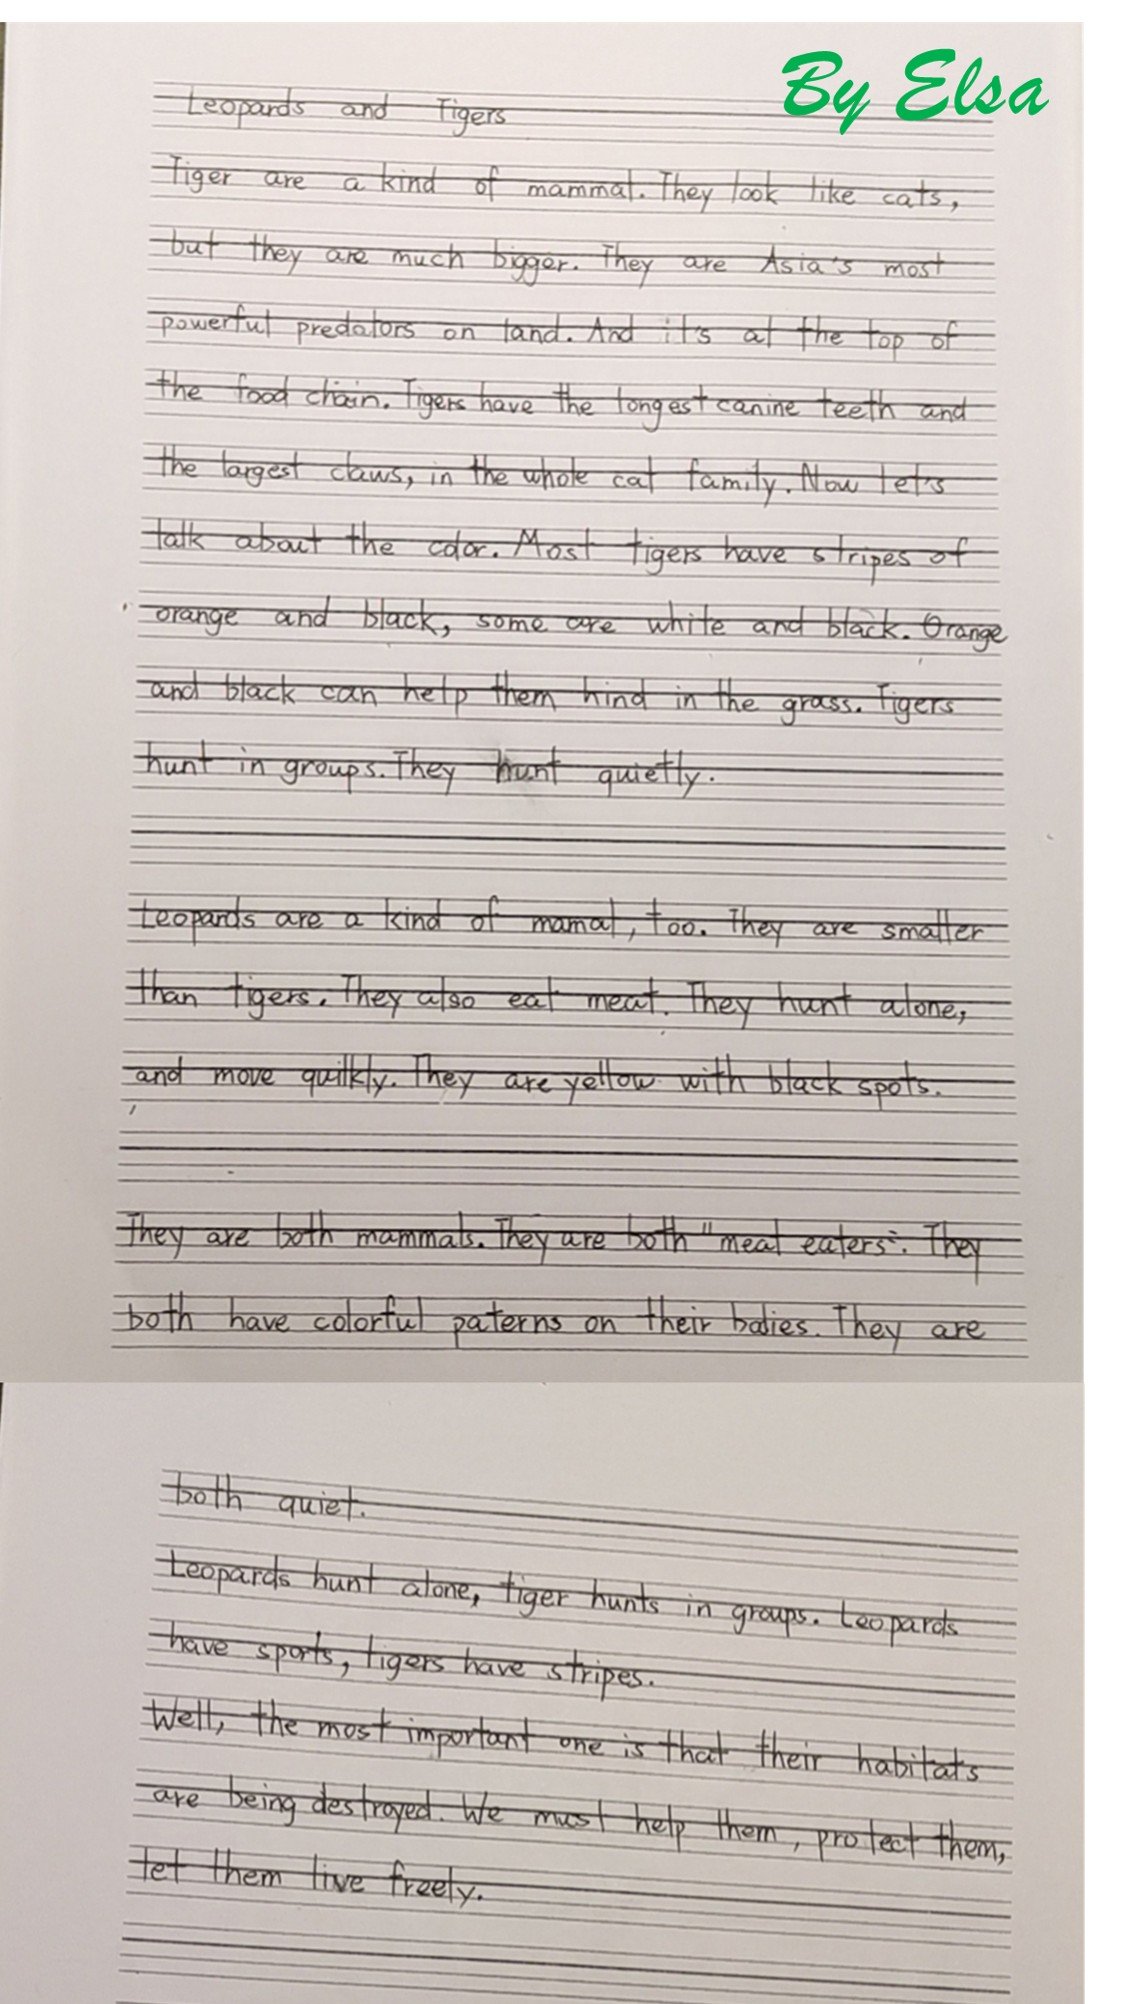 By Elsa
Leopards and Tigers
Tiger are a kind of mammal. They look like cats,
but they are much bigger. They are Asia's most
powerful predators on land. And it's at the top of
the food chain. Tigers have the longest canine teeth and
the largest claws, in the whole cat family. Now let's
talk about the color. Most tigers have stripes of
orange and black, some are white and black. Orange
and black can help them hind in the grass. Tigers
hunt in groups. They hunt quietly.
Leopards are a kind of mamal, too. They are smaller
than tigers. They also eat meat. They hunt alone,
and move quilkly. They are yellow with black spots.
They are both mammals. They are both "meat eaters". They
both have colorful paterns on their bodies. They are
both quiet.
Leopards hunt alone, tiger hunts in groups. Leopards
have sports, tigers have stripes.
Well, the most important one is that their habitats
are being destroyed. We must help them, protect them,
let them live freely.